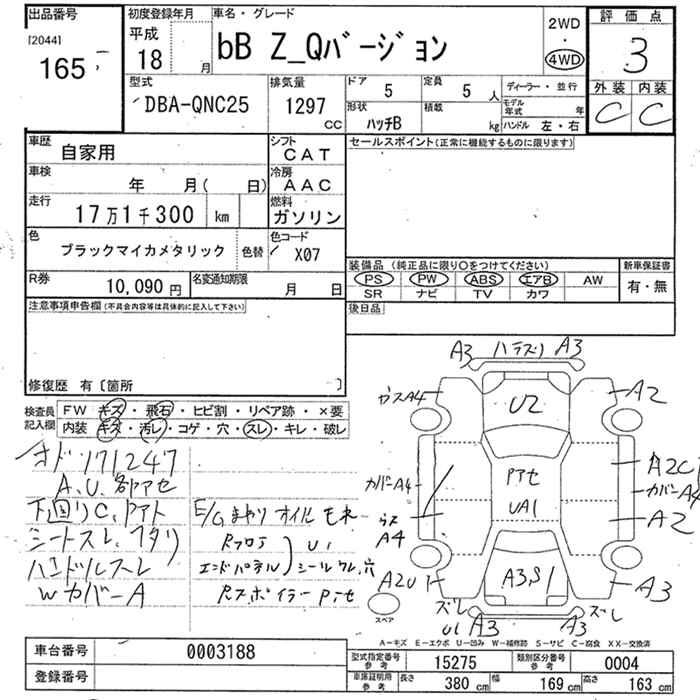 出品番号
[2044]
165
初度登録年月
平成
18
月
車名・グレード
bB Z_Qバージョン
2WD
・
4WD
評価点
3
外装 内装
C C
型式
DBA-QNC25
排気量
1297
CC
ドア
5
定員
5 人
形状
ハッチB
積載
kg
ディーラー・並行
モデル
年式
年
ハンドル 左・右
車歴
自家用
シフト
CAT
車検
年 月( 日)
冷房
AAC
走行
17万1千300 km
燃料
ガソリン
色
ブラックマイカメタリック
色替
色コード
X07
R券
10,090 円
名変通知期限
月 日
セールスポイント(正常に機能するものに限ります)
装備品 (純正品に限り○をつけてください)
PS PW ABS エアB AW
SR ナビ TV カワ
新車保証書
有・無
後日品
注意事項申告欄(不具合内容等は具体的に記入して下さい)
修復歴 有〔箇所 〕
検査員
記入欄
FW キズ・飛石・ヒビ割・リペア跡・×要
内装 キズ・汚レ・コゲ・穴・スレ・キレ・破レ
オド171247
A.U.各アセ
下回りC.アト
シートスレ.フタリ
ハンドルスレ
WカバーA
E/Gまわりオイルモレ
Rフロア
エンドパネル
U1
シールワレ.穴
Rスポイラーアセ
A3 ハラズリ A3
ガラスA4
U2
A2
カバーA4
アセ
UA1
A2C
カバーA4
A4
A2
A2U1
A3S1
A3
ズレ
U1 A3
A3
ズレ
スペア
A-キズ E-エクボ U-凹み W-補修跡 S-サビ C-腐食 XX-交換済
車台番号
0003188
登録番号
型式指定番号
参考
15275
類別区分番号
参考
0004
車庫証明用
参考
長さ
380 cm
幅
169 cm
高さ
163 cm